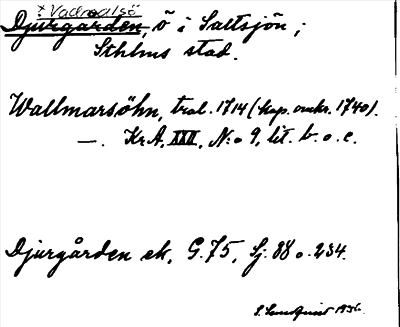 × Vadroalsö
Djurgården, ö i Saltsjön;
Sthlms stad.
Wallmarsöhn, trol. 1714 (kop. omkr. 1740).
—. Kr.A, XXX, N:o 9, lit. b. o. c.
Djurgården ek, G. 75, Sj. 88 o. 234.
S. Sundquist 1936.